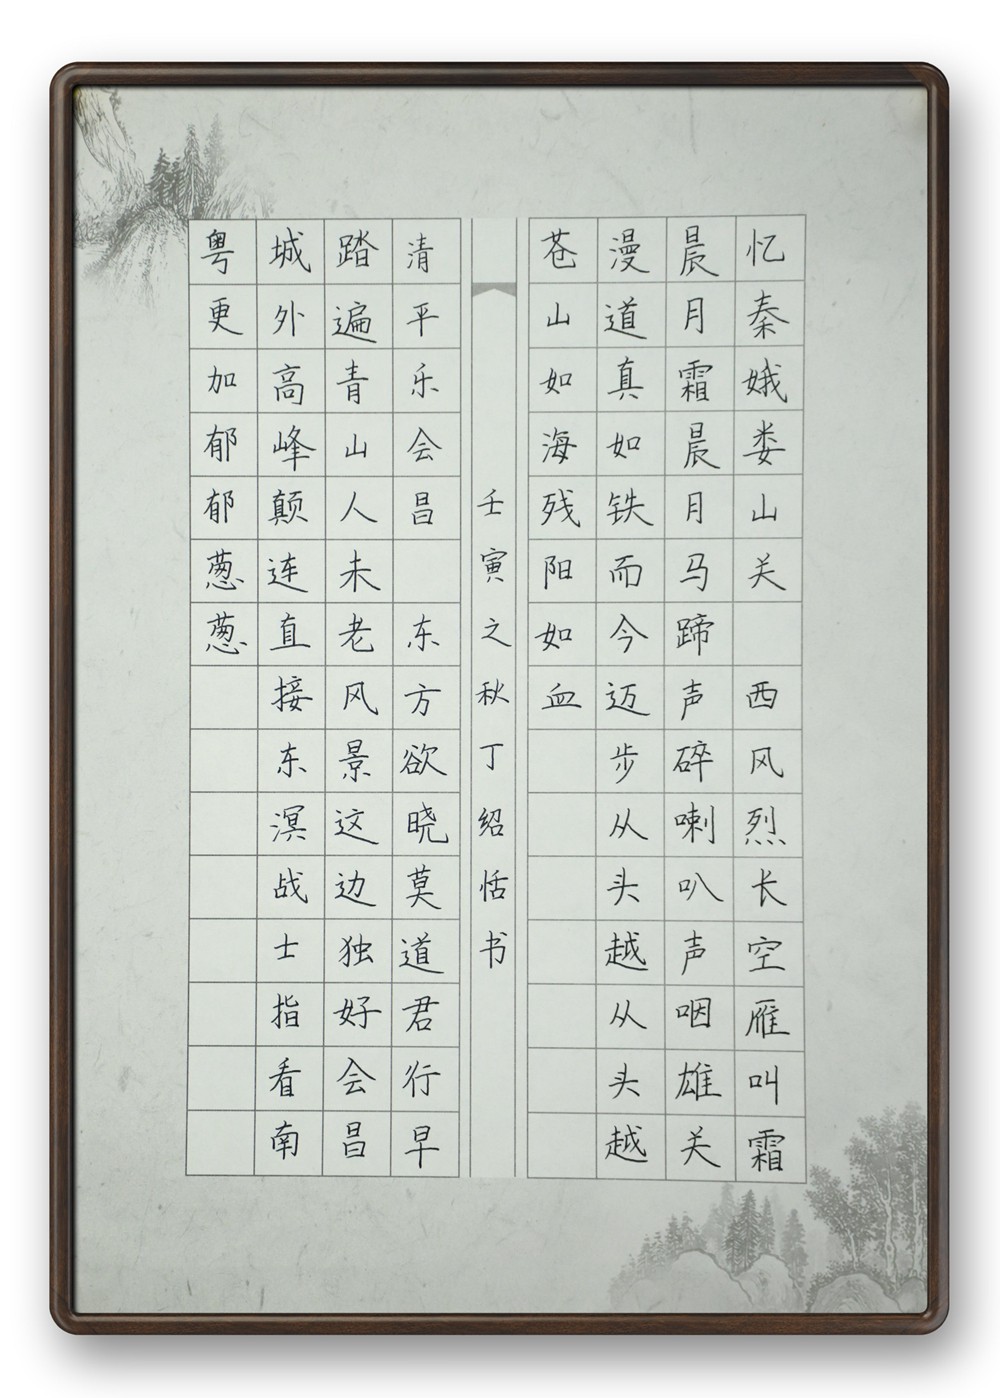 忆秦娥娄山关 西风烈长空雁叫霜
晨月霜晨月马蹄声碎喇叭声咽雄关
漫道真如铁而今迈步从头越从头越
苍山如海残阳如血
壬寅之秋丁绍恬书
清平乐会昌 东方欲晓莫道君行早
踏遍青山人未老风景这边独好会昌
城外高峰颠连直接东溟战士指看南
粤更加郁郁葱葱